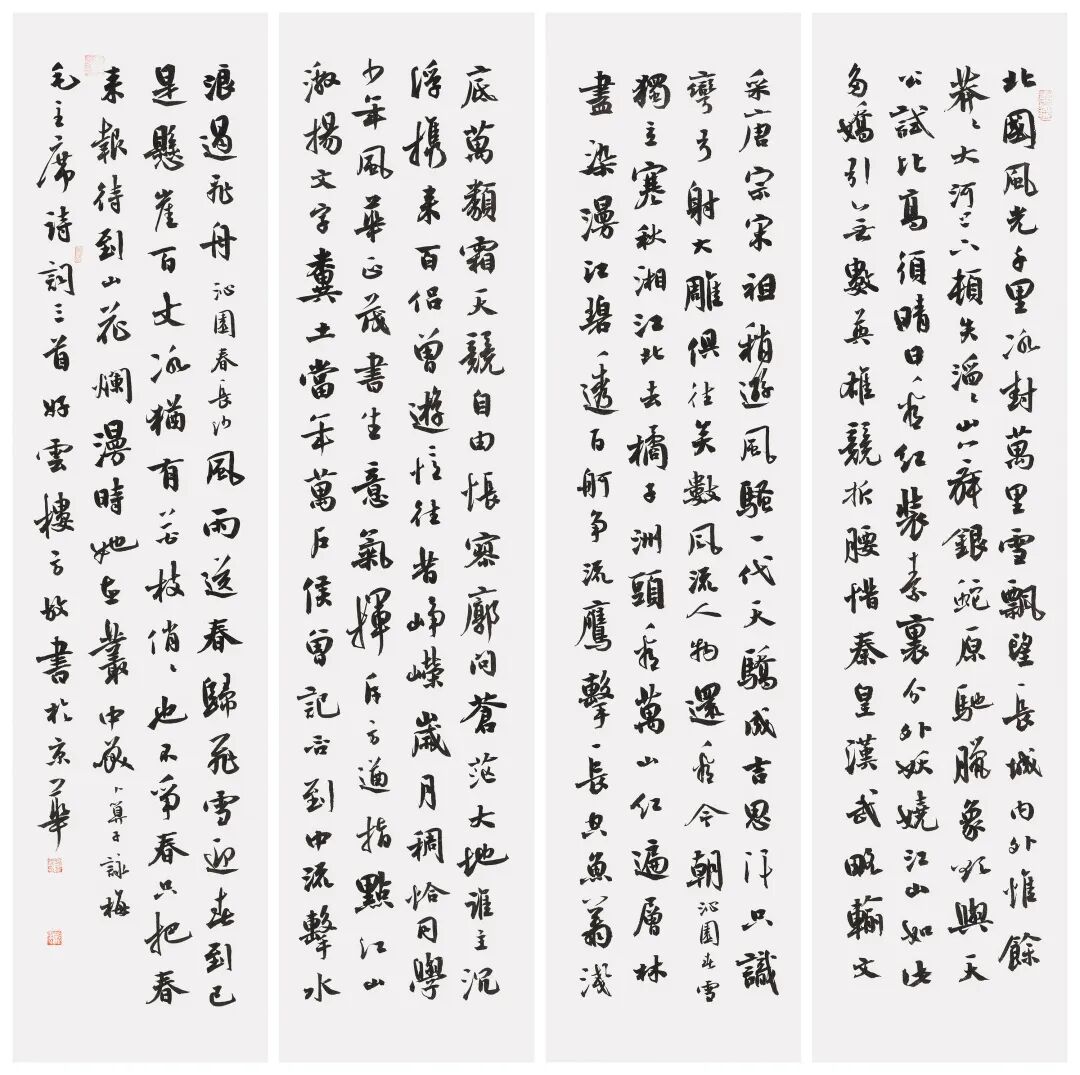 北國風光千里冰封萬里雪飄望長城內外惟餘
莽〻大河上下頓失滔〻山舞銀蛇原馳臘象欲與天
公試比高須晴日看紅裝素裹分外妖嬈江山如此
多嬌引無數英雄競折腰惜秦皇漢武略輸文
采唐宗宋祖稍遜風騷一代天驕成吉思汗只識
彎弓射大雕俱往矣數風流人物還看今朝沁園春雪
獨立寒秋湘江北去橘子洲頭看萬山紅遍層林
盡染漫江碧透百舸爭流鷹擊長空魚翔淺
底萬類霜天競自由悵寥廓問蒼茫大地誰主沉
浮攜來百侶曾遊憶往昔崢嶸歲月稠恰同學
少年風華正茂書生意氣揮斥方遒指點江山
激揚文字糞土當年萬戶侯曾記否到中流擊水
浪遏飛舟沁園春長沙風雨送春歸飛雪迎春到已
是懸崖百丈冰猶有花枝俏〻也不爭春只把春
來報待到山花爛漫時她在叢中笑卜算子詠梅
毛主席詩詞三首好雲樓方放書於京華